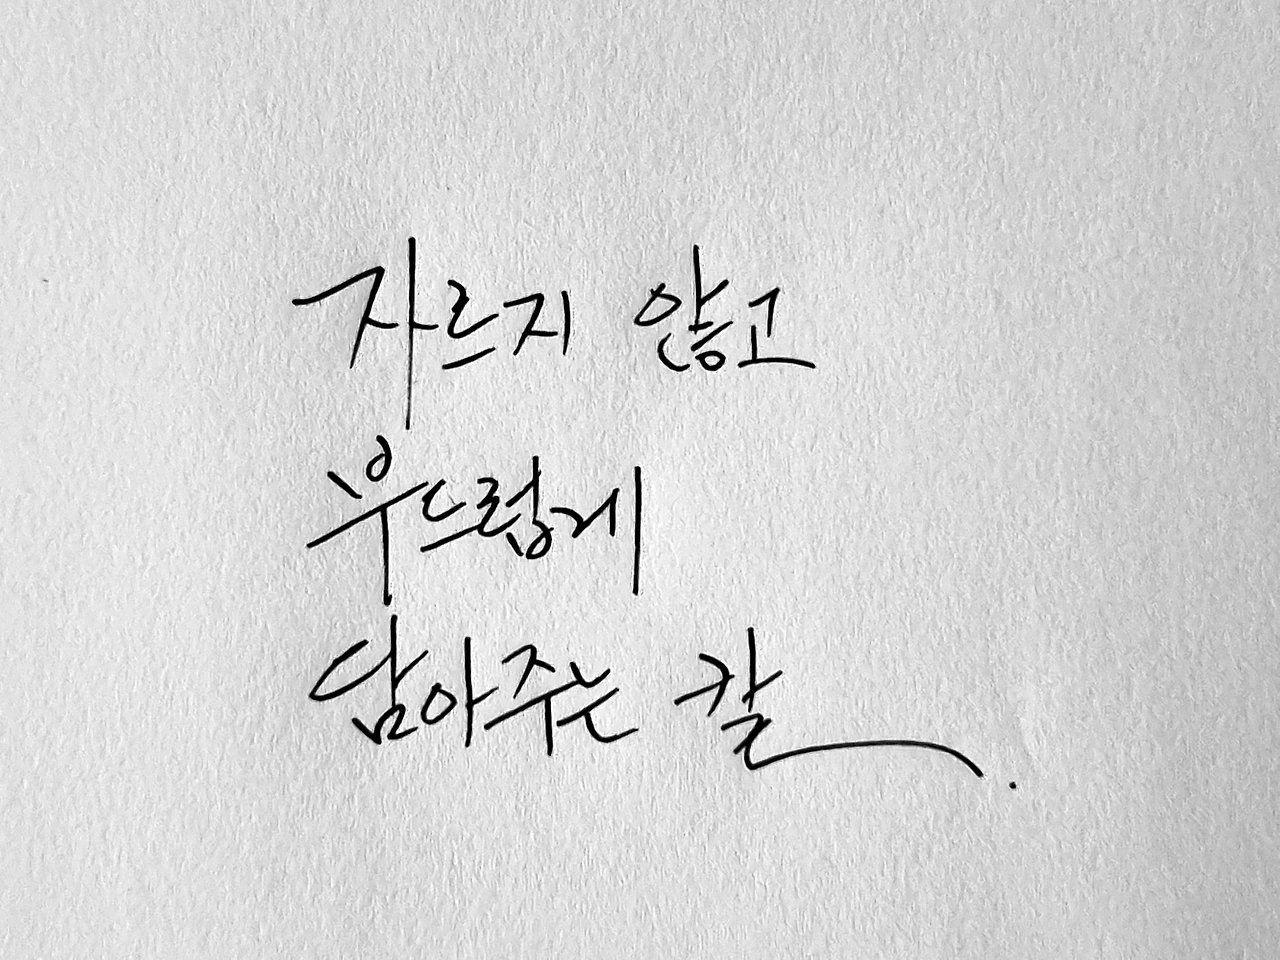 자르지 않고
부드럽게
담아주는 칼.